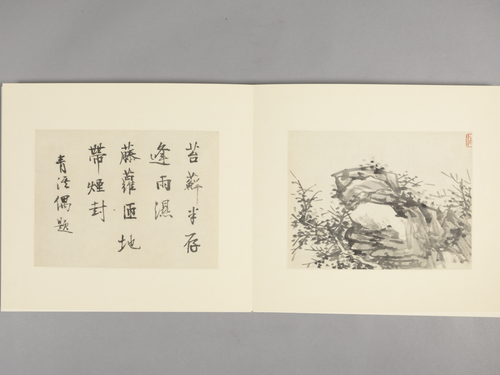 苔蘚半存
逢雨濕
藤蘿匝地
帶煙封
青 偶題